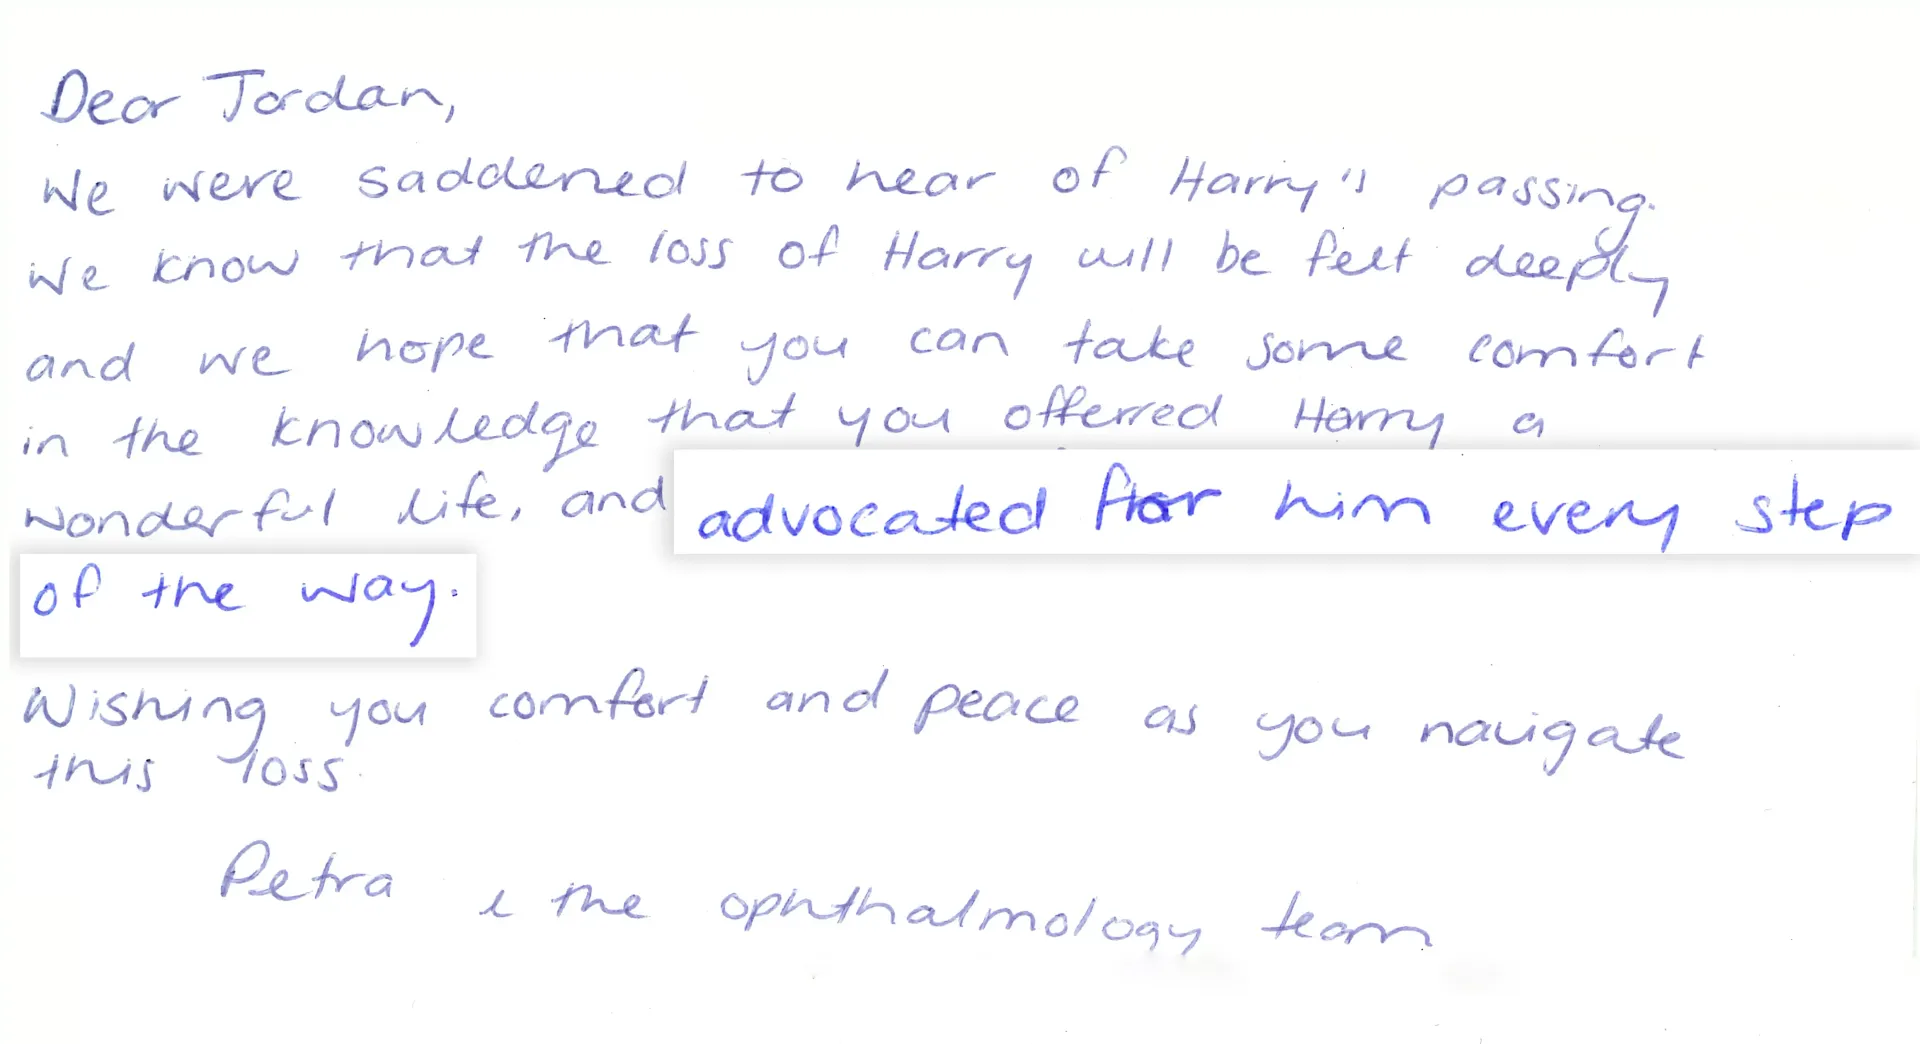 Dear Jordan,
We were saddened to hear of Harry's passing.
We know that the loss of Harry will be felt deeply
and we hope that you can take some comfort
in the knowledge that you offerred Harry a
wonderful life, and advocated for him every step
of the way.
Wishing you comfort and peace as you navigate
this loss.
Petra & the ophthalmology team